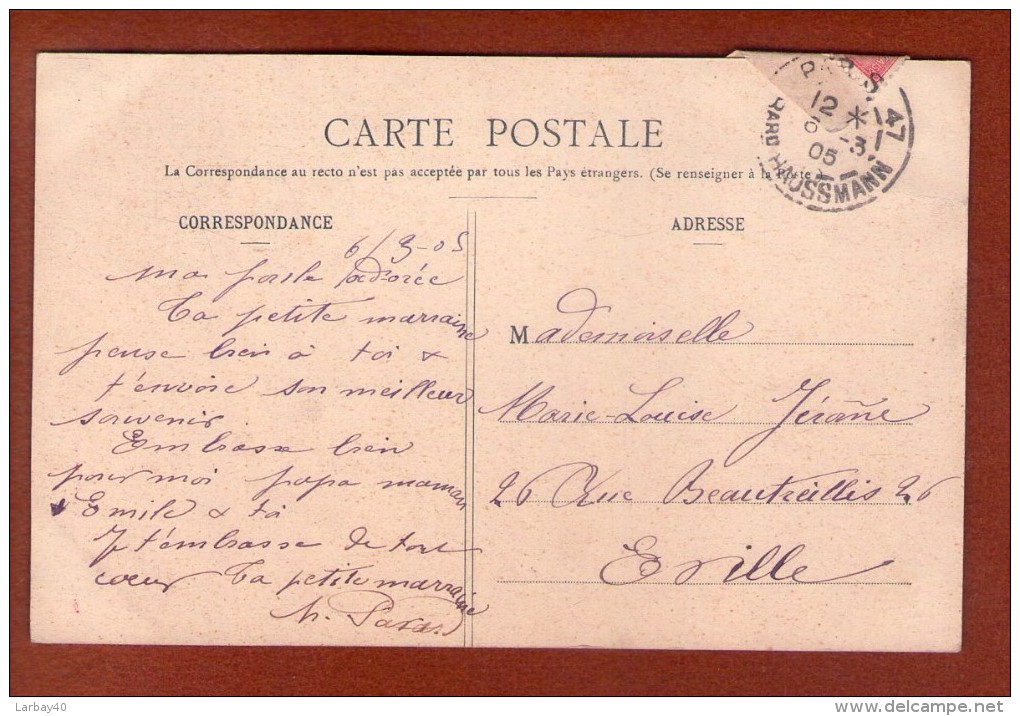 CARTE POSTALE
La Correspondance au recto n'est pas acceptée par tous les Pays étrangers. (Se renseigner à la Poste.)
PARIS 47
12 *
6 -3
05
BARD HAUSSMANN
CORRESPONDANCE
6/3-05
Ma adorée
Ta petite marraine
pense bien à toi &
t'envoie son meilleur
souvenir
Embrasse bien
pour moi papa maman
Emile & toi
Je t'embrasse de tout
coeur Ta petite marraine
ADRESSE
Mademoiselle
Marie-Louise
26 Rue Beautreillis 26
E ville
Larbay40
www.delcampe.net